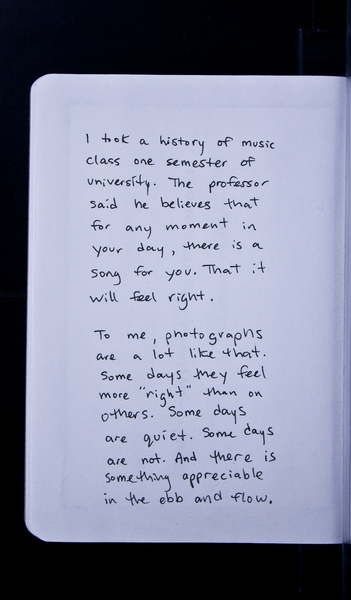 I took a history of music
class one semester of
university. The professor
said he believes that
for any moment in
your day, there is a
song for you. That it
will feel right.
To me, photographs
are a lot like that.
Some days they feel
more "right" than on
others. Some days
are quiet. Some days
are not. And there is
something appreciable
in the ebb and flow.